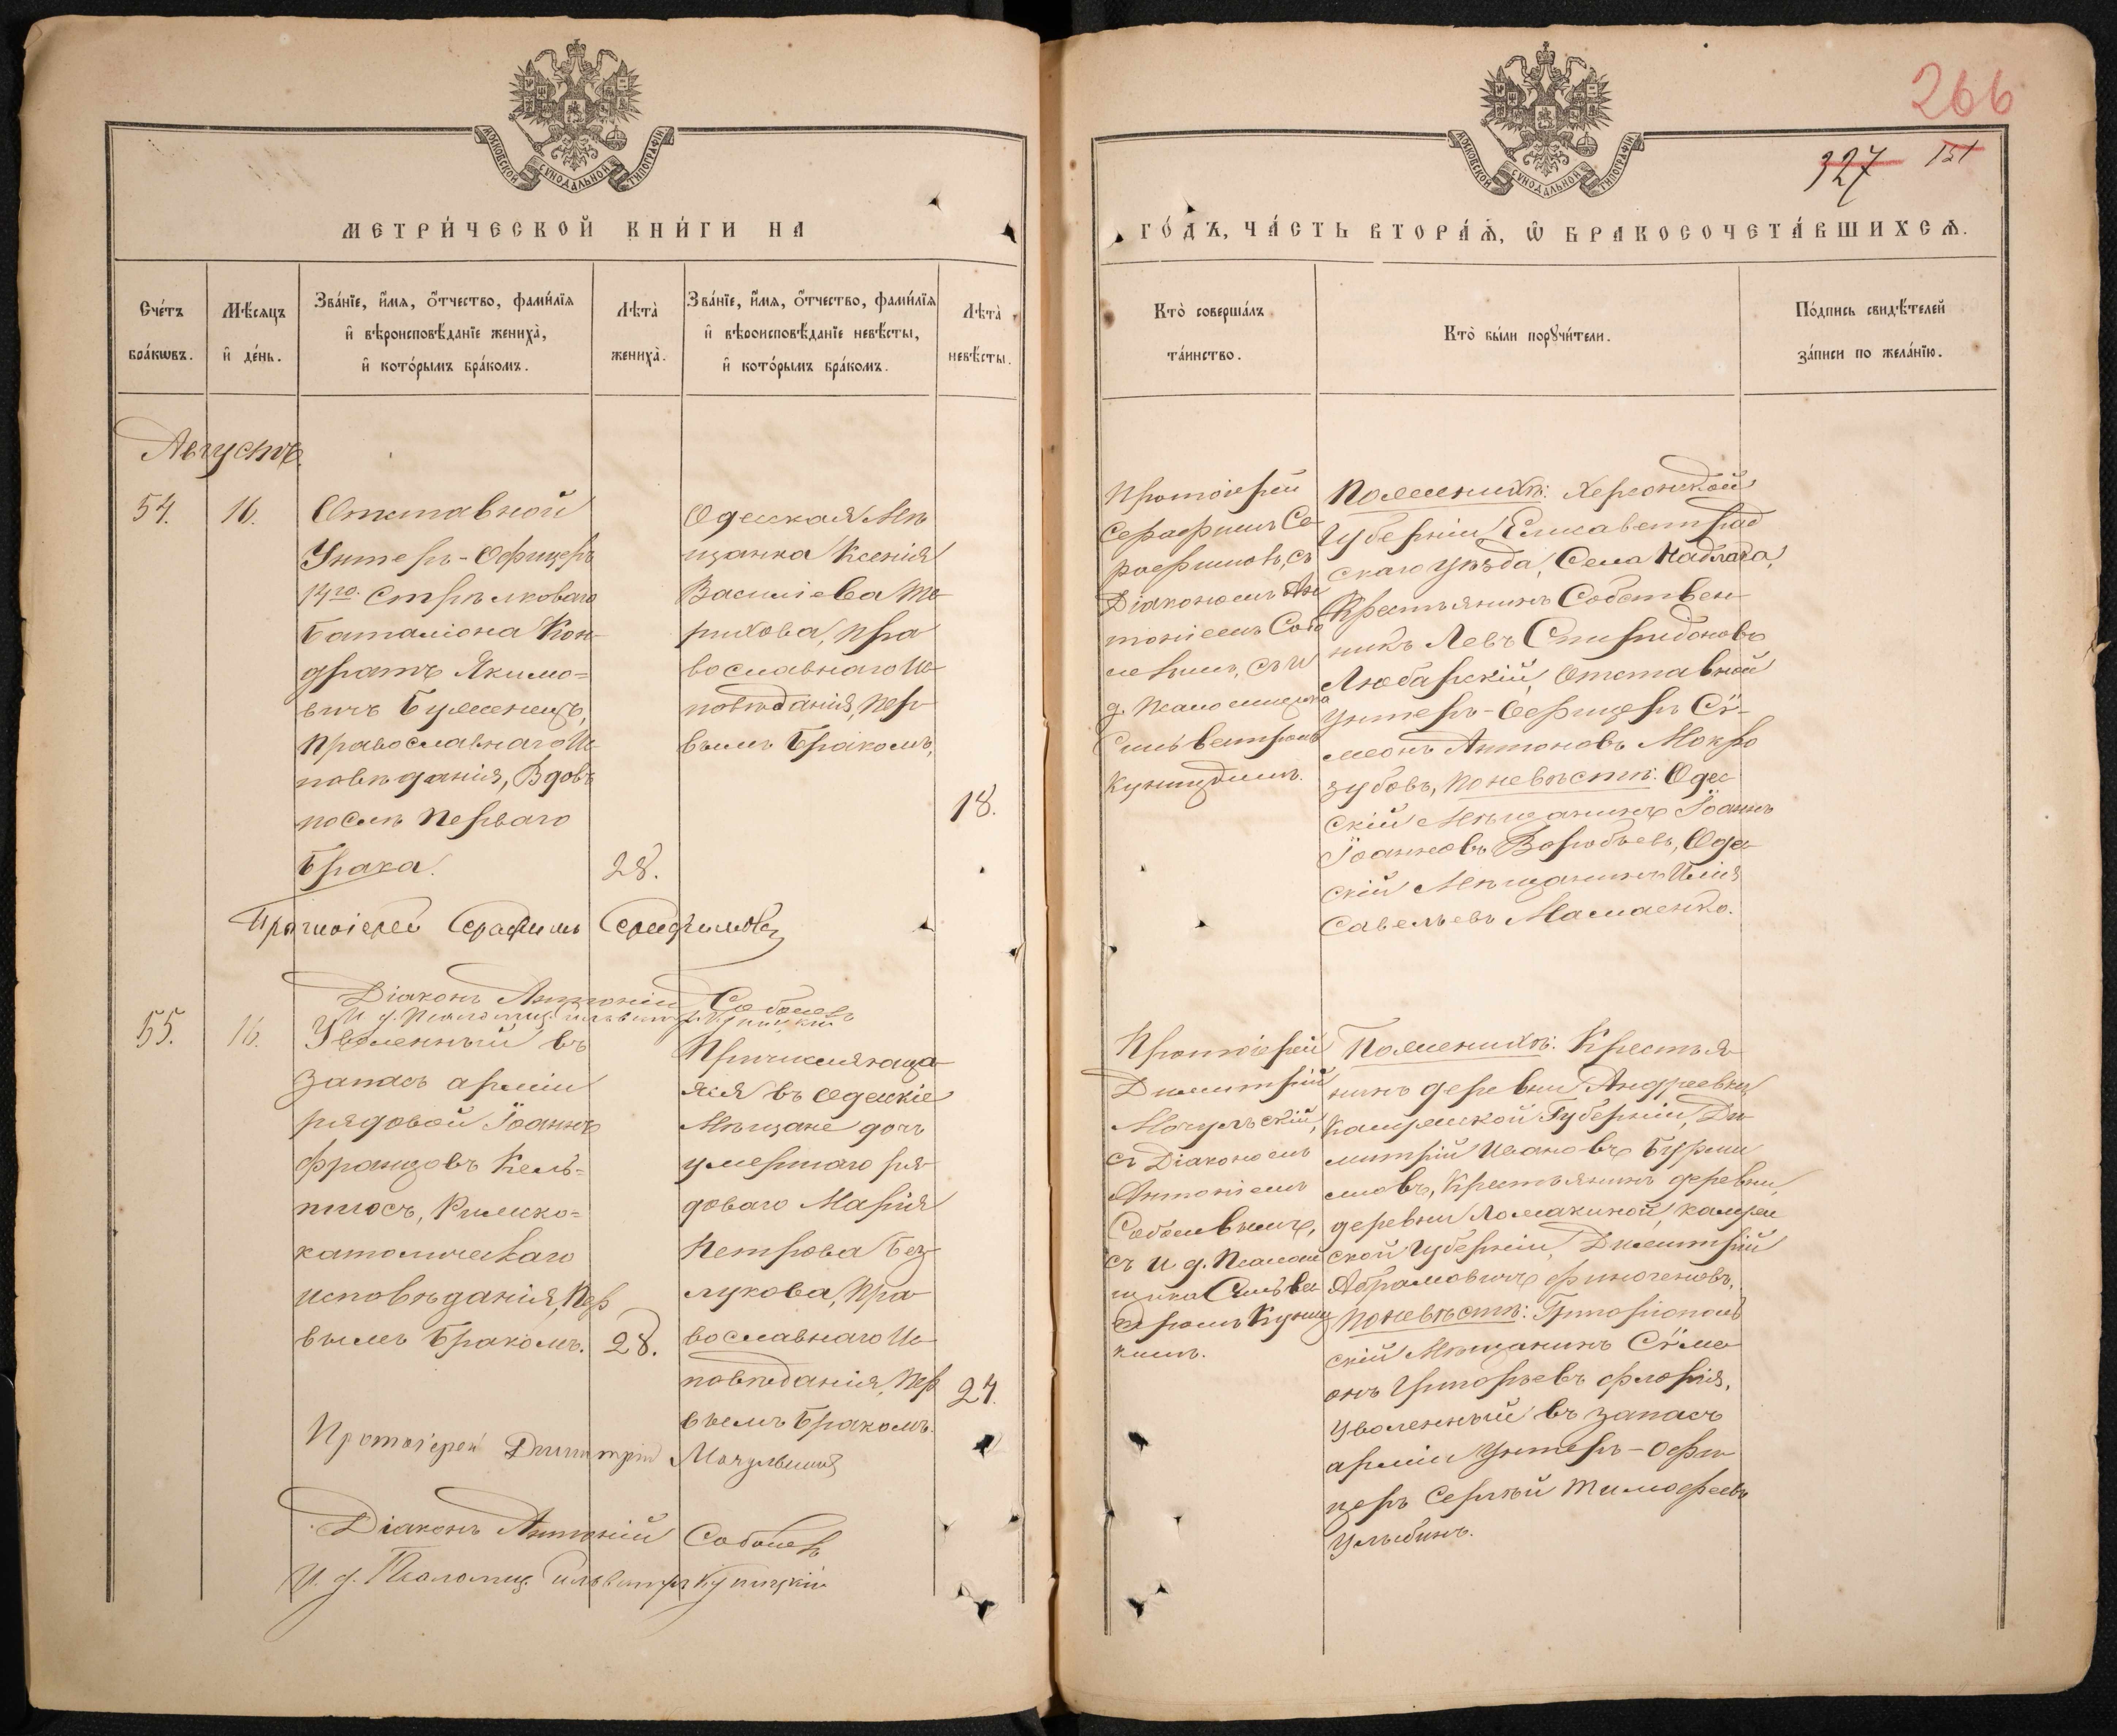 МОСКОВСКОЙ СѴНОДАЛЬНОЙ ТИПОГРАФІИ
МЕТРИ́ЧЕСКОЙ КНИ́ГИ НА
Сче́тъ бра́кѡвъ.
Мѣ́сяцъ и҆ де́нь.
Зва́нїе, и҆́мѧ, ѻ҆́тчество, фами́лїѧ
и҆ вѣроисповѣ́данїе жениха̀,
и҆ кото́рымъ бра́комъ.
Лѣта̀ жениха̀.
Зва́нїе, и҆́мѧ, ѻ҆́тчество, фами́лїѧ
и҆ вѣроисповѣ́данїе невѣ́сты,
и҆ кото́рымъ бра́комъ.
Лѣта̀ невѣ́сты.
Августъ.
54.
16.
Отставной
Унтеръ-Офицеръ
14го Стрѣлковаго
Баталіона Кон-
дратъ Якимо=
вичъ
Православнаго Ис
повѣданія, Вдовъ
послѣ перваго
брака.
28.
Одесская Мѣ
щанка Ксенія
Василіева Те-
рихова, пра
вославнаго Ис
повѣданія, пер-
вымъ бракомъ,
18.
Протоіерей Серафимъ Серафимовъ
Діаконъ Антоній Соболевъ
И. д. Псаломщ. Сильвестръ Куницкій
55.
16.
Уволенный въ
запасъ арміи
рядовой Іоаннъ
Францовъ Кель-
пшосъ, Римско=
католическаго
исповѣданія, пер
вымъ бракомъ.
28.
Причисляюща-
яся въ Одесскіе
Мѣщане дочь
умершаго ря-
доваго Марія
Петрова Без-
лукова, пра-
вославнаго Ис-
повѣданія, пер
вымъ бракомъ.
24.
Протоіерей Димитрій Мочульскій
Діаконъ Антоній Соболевъ
И. д. Псаломщ. Сильвестръ Куницкій
266
327
151
МОСКОВСКОЙ СѴНОДАЛЬНОЙ ТИПОГРАФІИ
ГО́ДЪ, ЧА́СТЬ ВТОРА́Ѧ, Ѡ҆ БРАКОСОЧЕТА́ВШИХСѦ.
Кто̀ соверша́лъ
та́инство.
Кто̀ бы́ли порꙋчи́тели.
По́дпись свидѣ́телей
за́писи по жела́нїю.
Протоіерей
Серафимъ Се
рафимовъ, съ
Діакономъ Ан
тоніемъ Собо
левымъ, съ и
д. псаломщика
Сильвестромъ
Куницкимъ.
По женихѣ: Херсонской
губерніи Елисаветград
скаго уѣзда, Села Надлака,
Крестьянинъ Собствен
никъ Левъ Спиридоновъ
Любарскій, Отставной
Унтеръ-Офицеръ Сѵ-
меонъ Антоновъ Мокро
зубовъ, по невѣстѣ: Одес
скій Мѣщанинъ Іоаннъ
Іоанновъ Воробьевъ, Одес
скій Мѣщанинъ Илія
Савельевъ Мамаенко.
Протоіерей
Димитрій
Мочульскій,
съ Діакономъ
Антоніемъ
Соболевымъ,
съ и. д. псалом
щика Сильве
стромъ Куниц
кимъ.
По женихѣ: Крестья
нинъ деревни Андреевки
губерніи, Ди
митрій Ивановъ
Крестьянинъ деревни,
деревни Ломакиной,
ской губерніи, Димитрій
Абрамовичъ Финогеновъ,
по невѣстѣ: Григоріополь
скій Мѣщанинъ Сѵме
онъ Григорьевъ Флорія,
Уволенный въ запасъ
арміи Унтеръ-Офи
церъ Сергѣй Тимофеевъ
Улыбинъ.